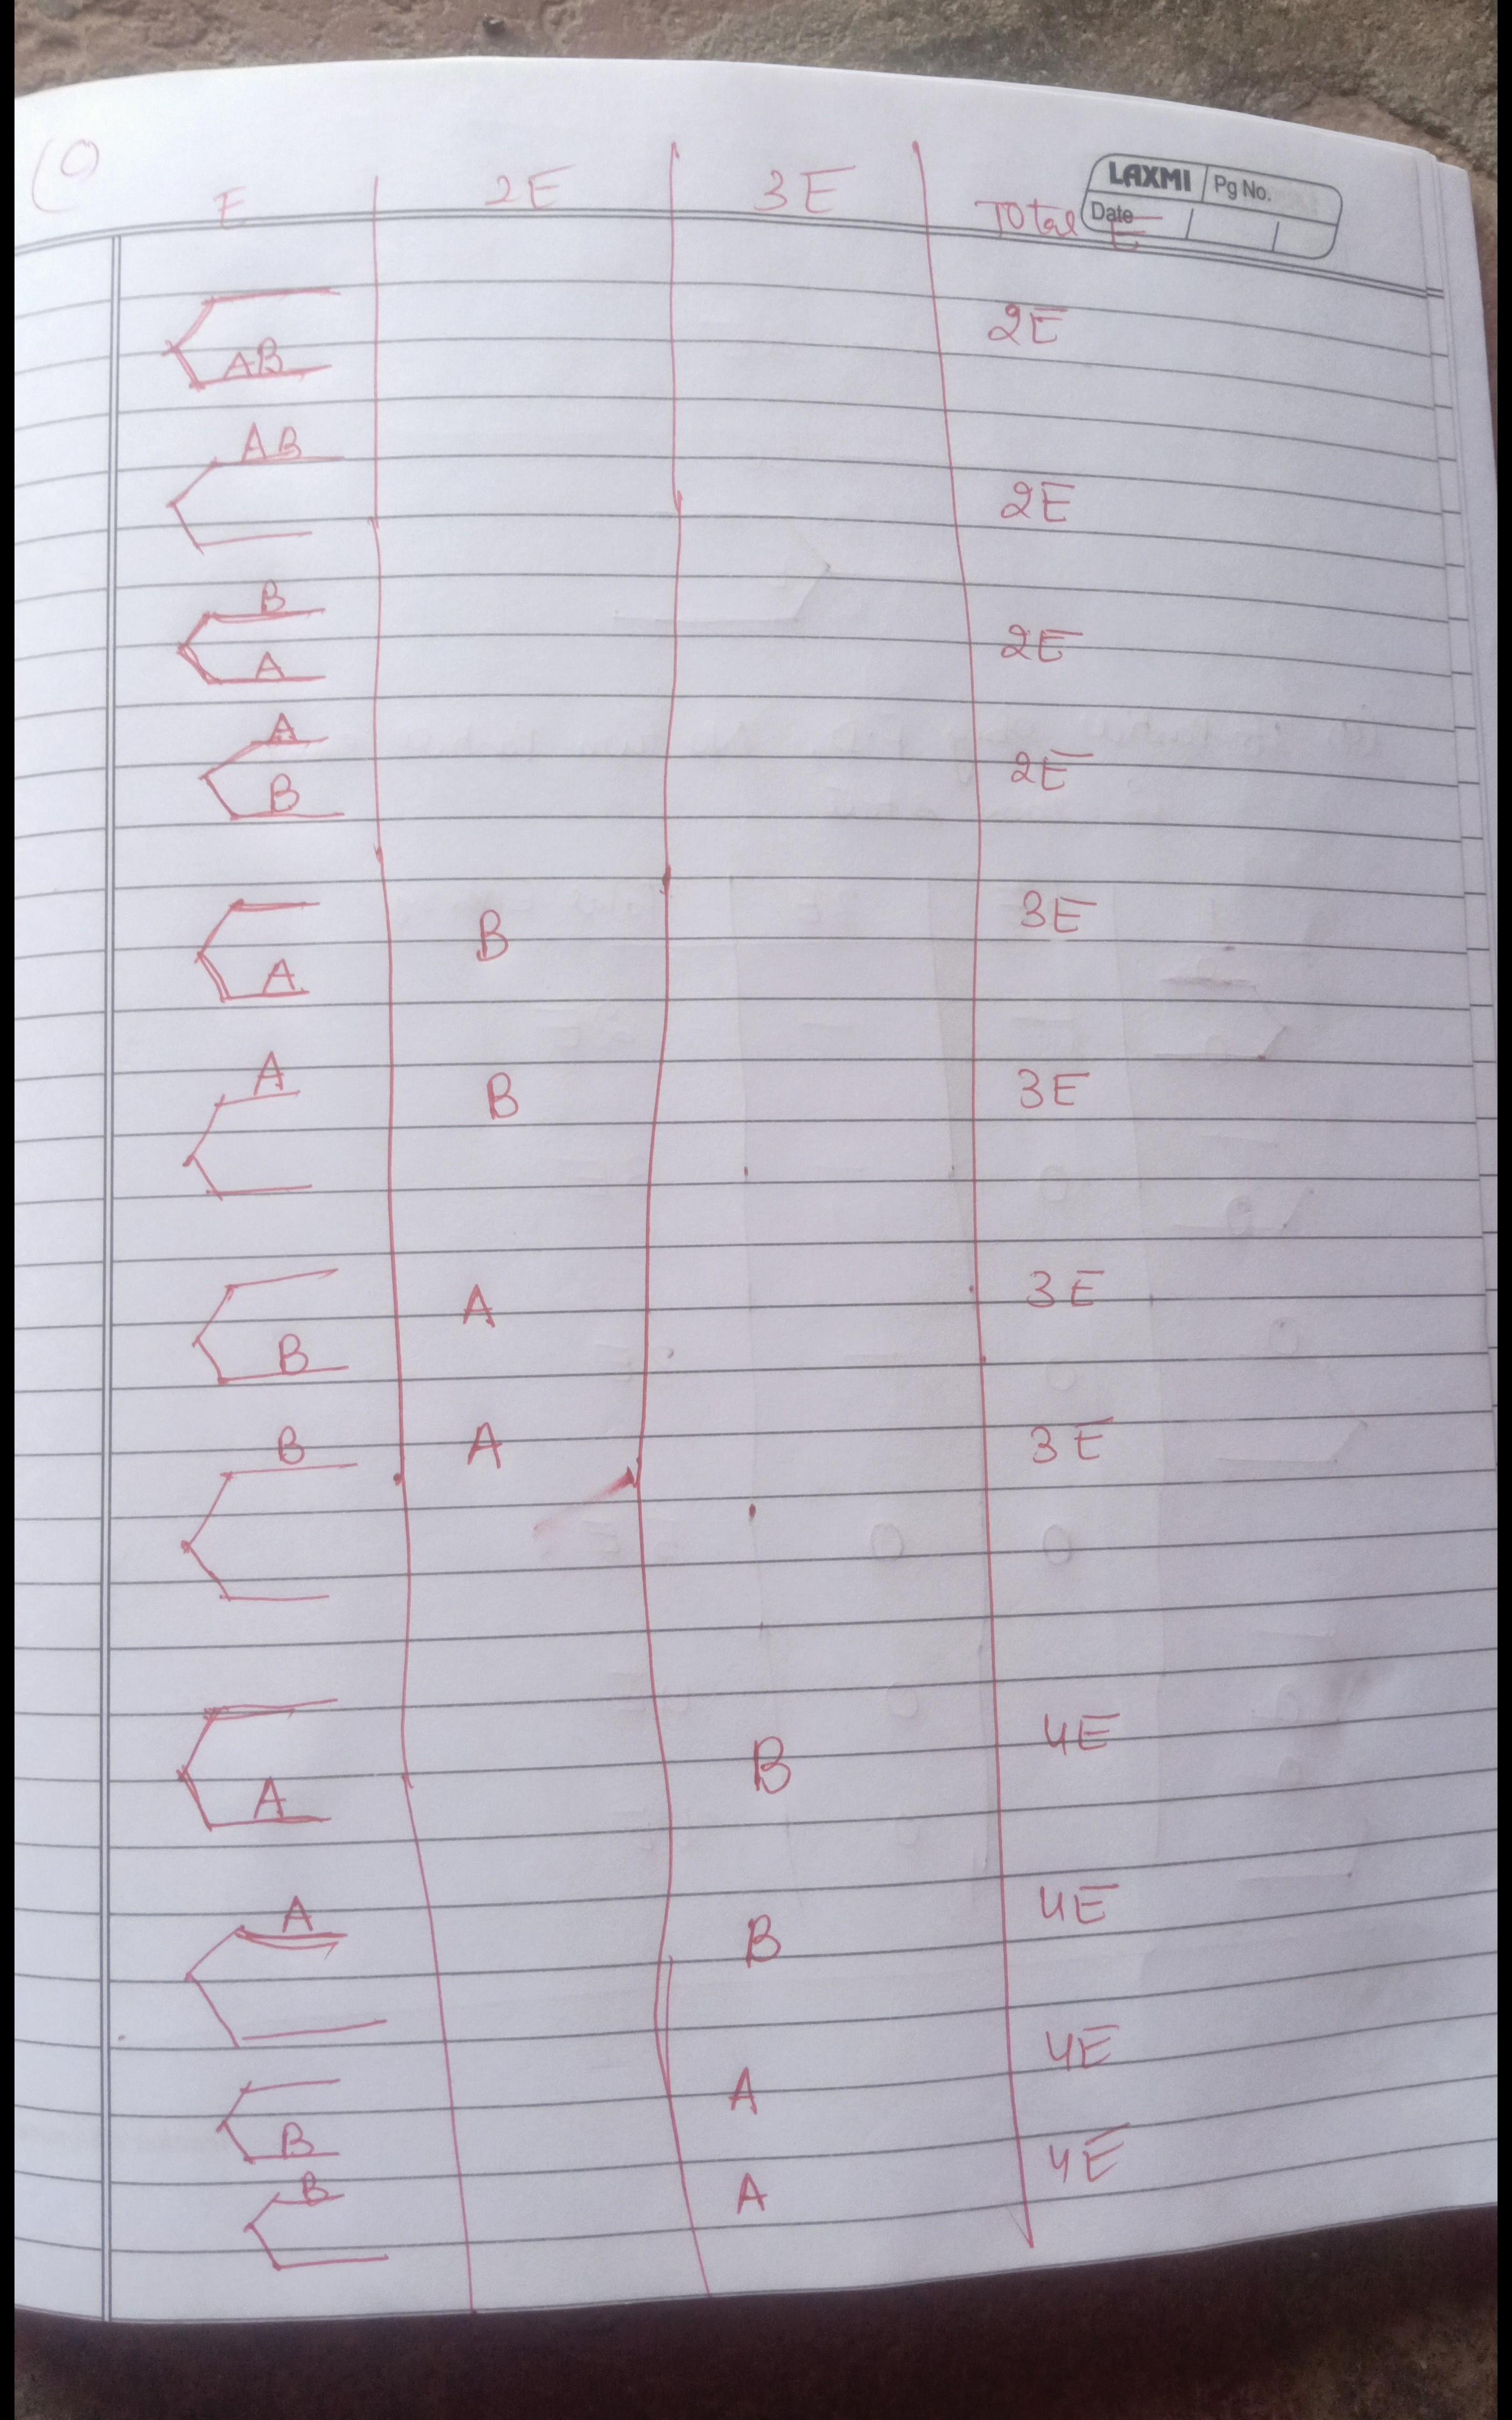 (0
LAXMI Pg No.
Date
E 2E 3E Total E
2E
AB
AB
2E
B
A 2E
A
B 2E
B 3E
A
A B 3E
A 3E
B
B A 3E
B 4E
A
A B 4E
A 4E
B
B A 4E